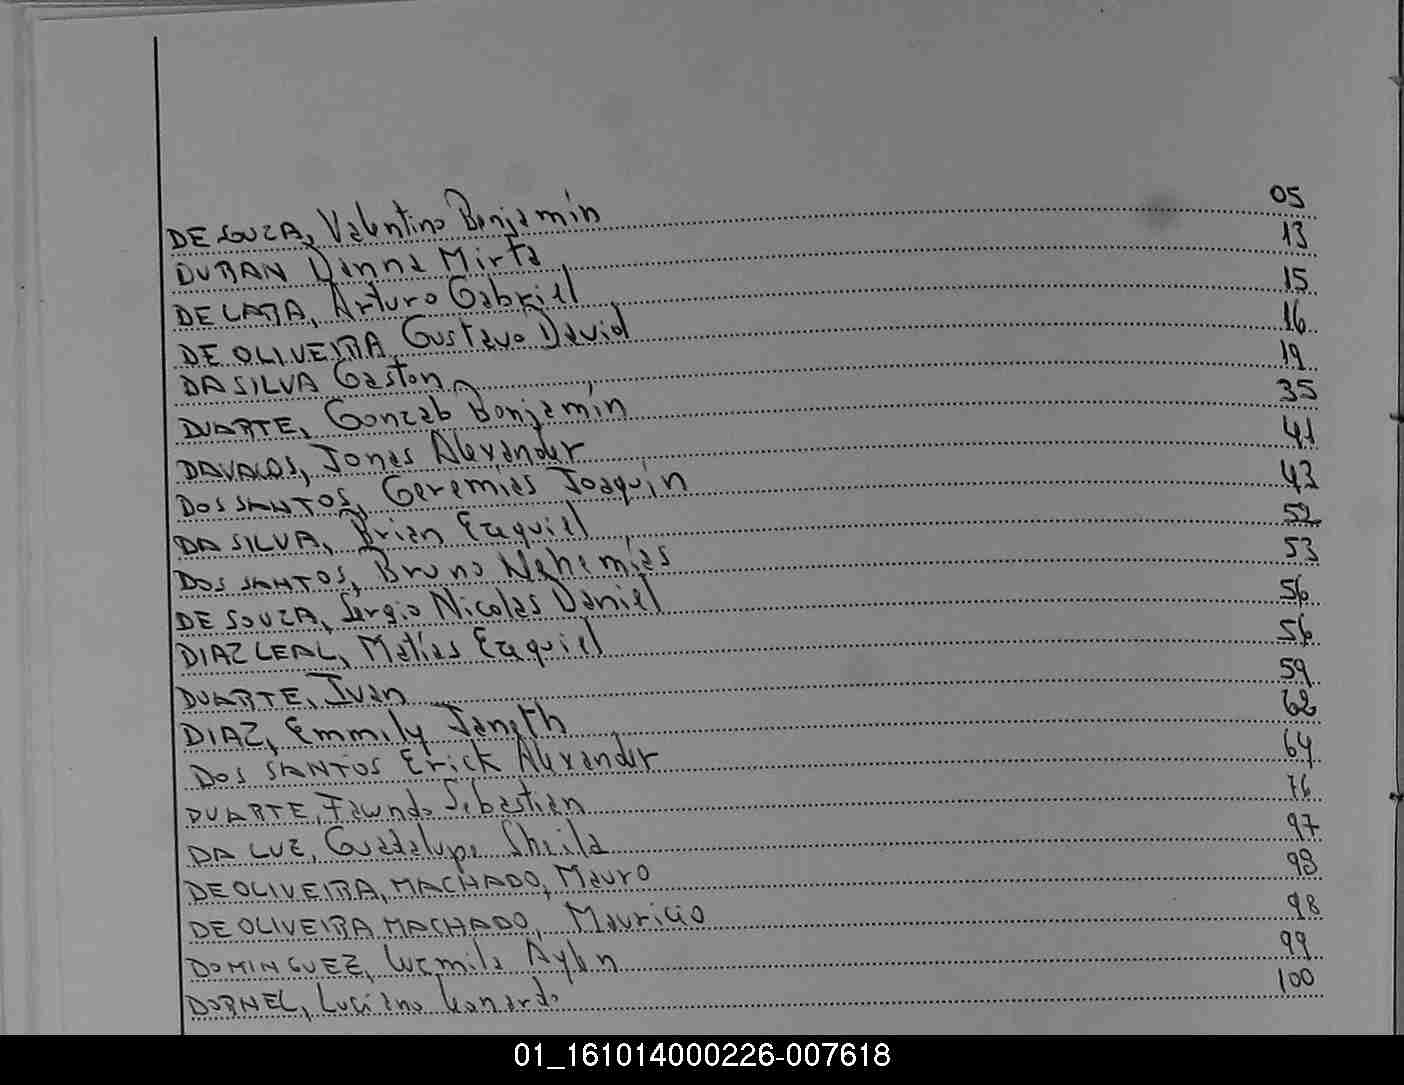 DE SOUZA, Valentino Benjamin 05
DURAN Danna Mirta 13
DE LARA, Arturo Gabriel 15
DE OLIVEIRA, Gustavo David 16
DA SILVA Gaston 19
DUARTE, Gonzalo Benjamin 35
DAVALOS, Jonas Alexander 41
DOS SANTOS, Geremias Joaquin 43
DA SILVA, Brian Ezequiel 52
DOS SANTOS, Bruno Nehemias 53
DE SOUZA, Sergio Nicolas Daniel 56
DIAZ LEAL, Matias Ezequiel 56
DUARTE, Ivan 59
DIAZ, Emmily Janeth 62
DOS SANTOS Erick Alexander 64
DUARTE, Facundo Sebastian 76
DA LUZ, Guadalupe Sheila 97
DE OLIVEIRA, MACHADO, Mauro 98
DE OLIVEIRA MACHADO, Mauricio 98
DOMINGUEZ, Aylen 99
DORNEL, Luciano Leonardo 100
01_161014000226-007618